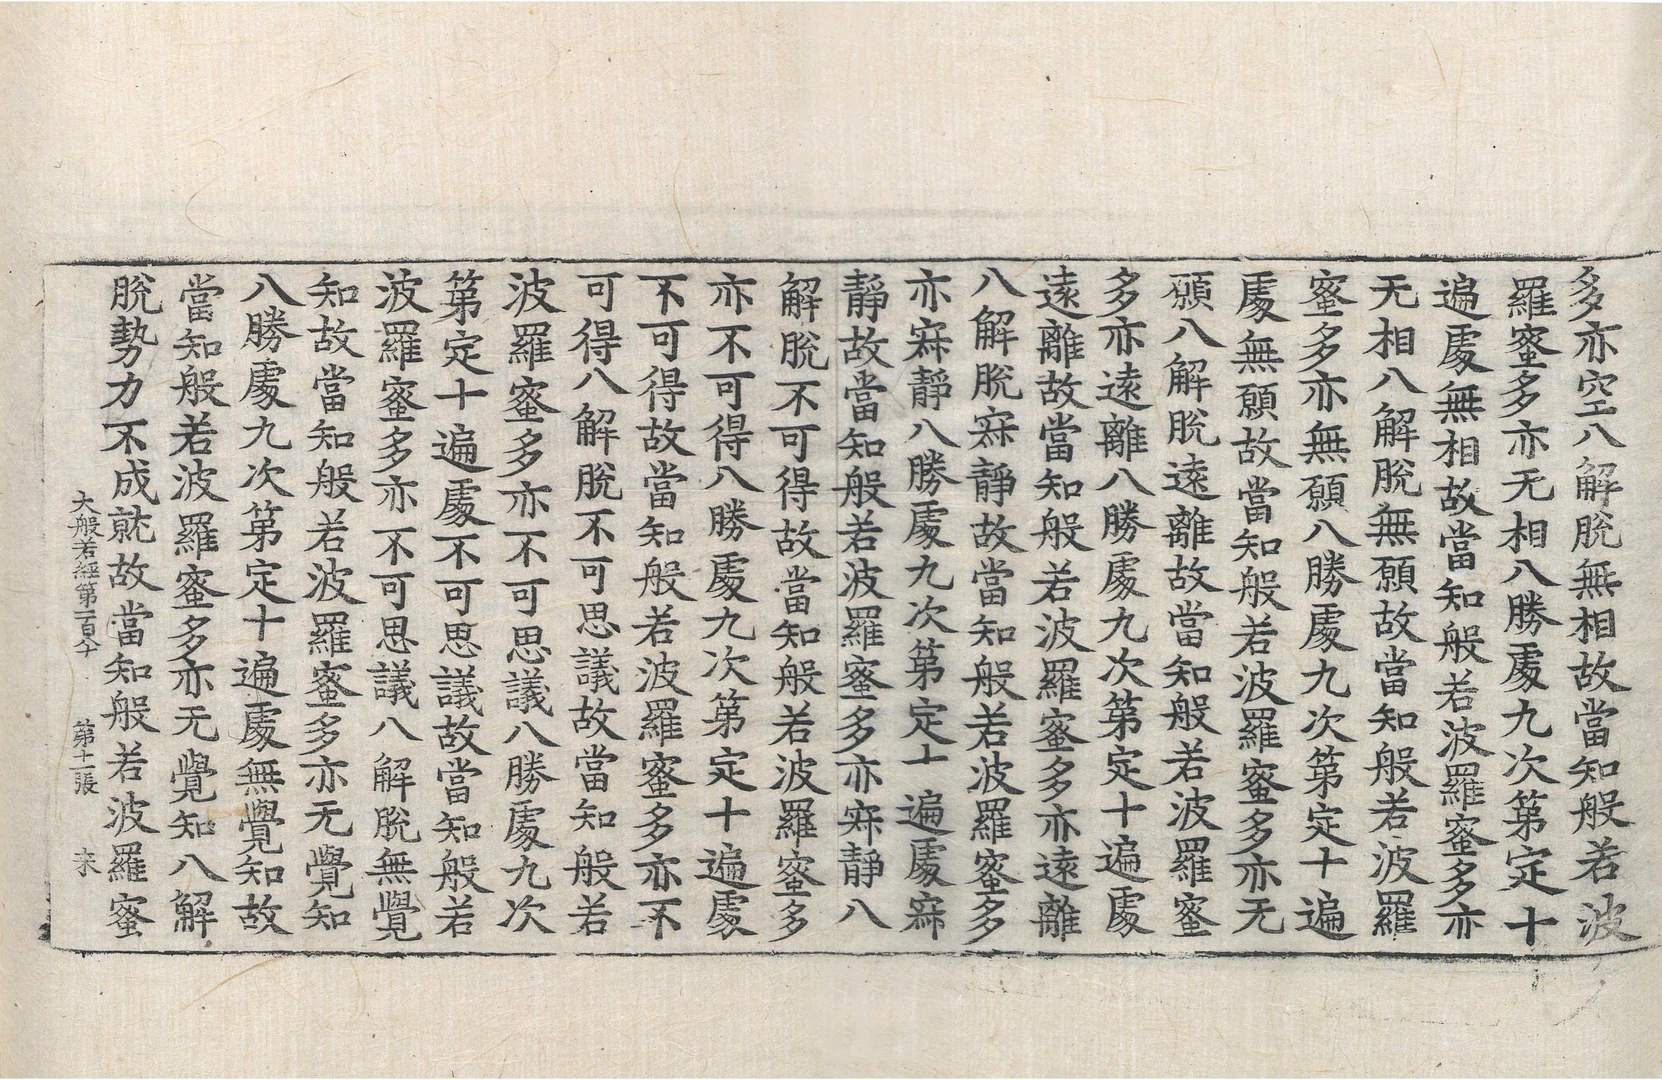 多亦空八解脫無相故當知般若波
羅蜜多亦无相八勝處九次第定十
遍處無相故當知般若波羅蜜多亦
无相八解脫無願故當知般若波羅
蜜多亦無願八勝處九次第定十遍
處無願故當知般若波羅蜜多亦无
願八解脫遠離故當知般若波羅蜜
多亦遠離八勝處九次第定十遍處
遠離故當知般若波羅蜜多亦遠離
八解脫寂靜故當知般若波羅蜜多
亦寂靜八勝處九次第定十遍處寂
靜故當知般若波羅蜜多亦寂靜八
解脫不可得故當知般若波羅蜜多
亦不可得八勝處九次第定十遍處
不可得故當知般若波羅蜜多亦不
可得八解脫不可思議故當知般若
波羅蜜多亦不可思議八勝處九次
第定十遍處不可思議故當知般若
波羅蜜多亦不可思議八解脫無覺
知故當知般若波羅蜜多亦无覺知
八勝處九次第定十遍處無覺知故
當知般若波羅蜜多亦无覺知八解
脫勢力不成就故當知般若波羅蜜
大般若經第一百 第十一張